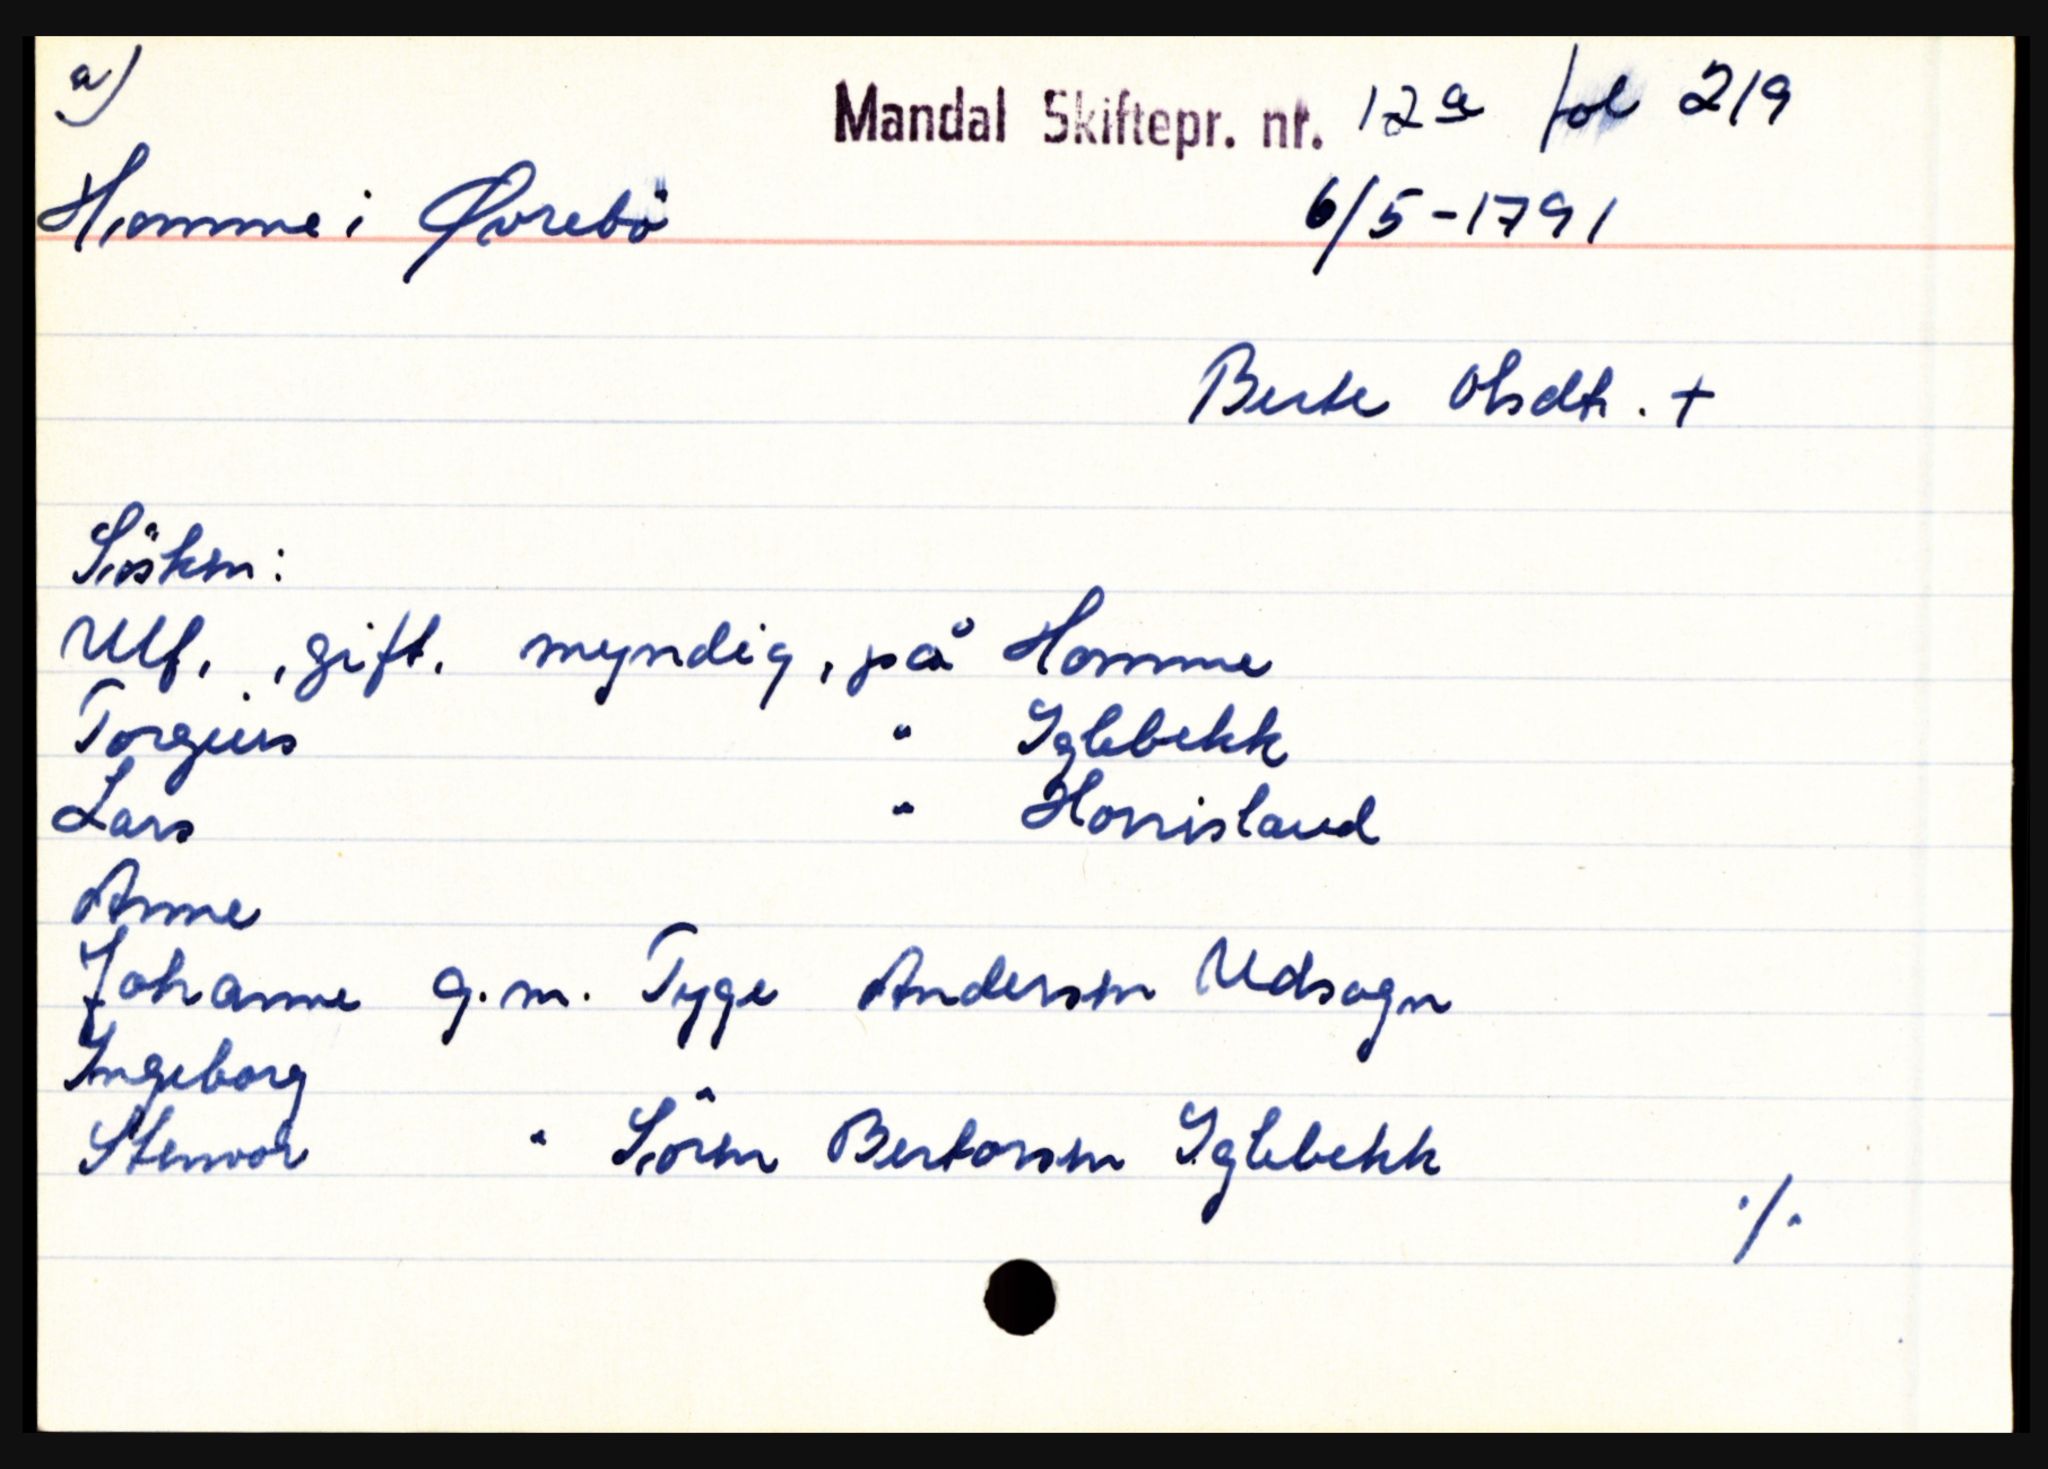 a)
Mandal Skiftepr. nr. 12a fol 219
Homme i Øvrebö
6/5-1791
Berte Olsdtr. +
Sösken:
Ulf, gift. myndig, på Homme
Torgius " Iglebekk
Lars " Honisland
Anne
Johanne g.m. Tyge Andersen Udsogn
Ingeborg
Stenvor " Sören Bertorsen Iglebekk
./.